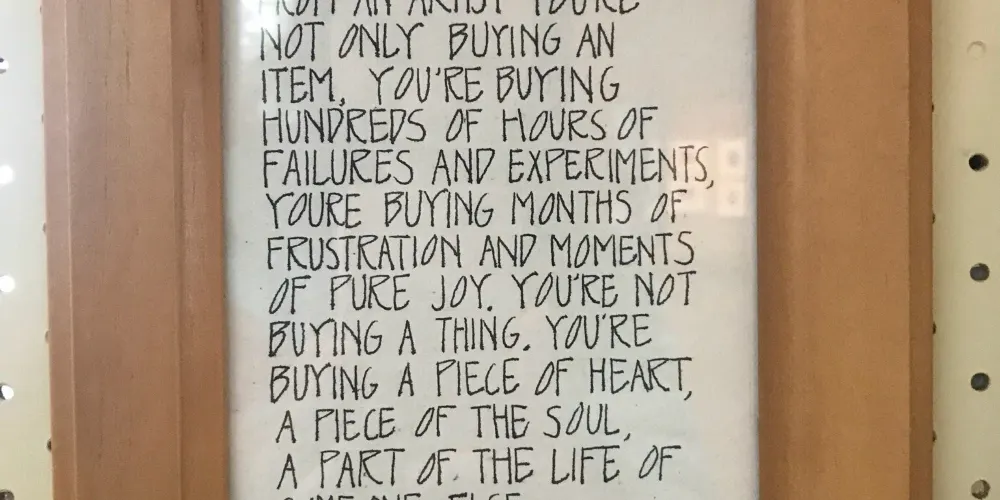 FROM AN ARTIST YOU'RE
NOT ONLY BUYING AN
ITEM, YOU'RE BUYING
HUNDREDS OF HOURS OF
FAILURES AND EXPERIMENTS,
YOURE BUYING MONTHS OF
FRUSTRATION AND MOMENTS
OF PURE JOY. YOU'RE NOT
BUYING A THING. YOU'RE
BUYING A PIECE OF HEART,
A PIECE OF THE SOUL,
A PART OF THE LIFE OF
SOMEONE ELSE